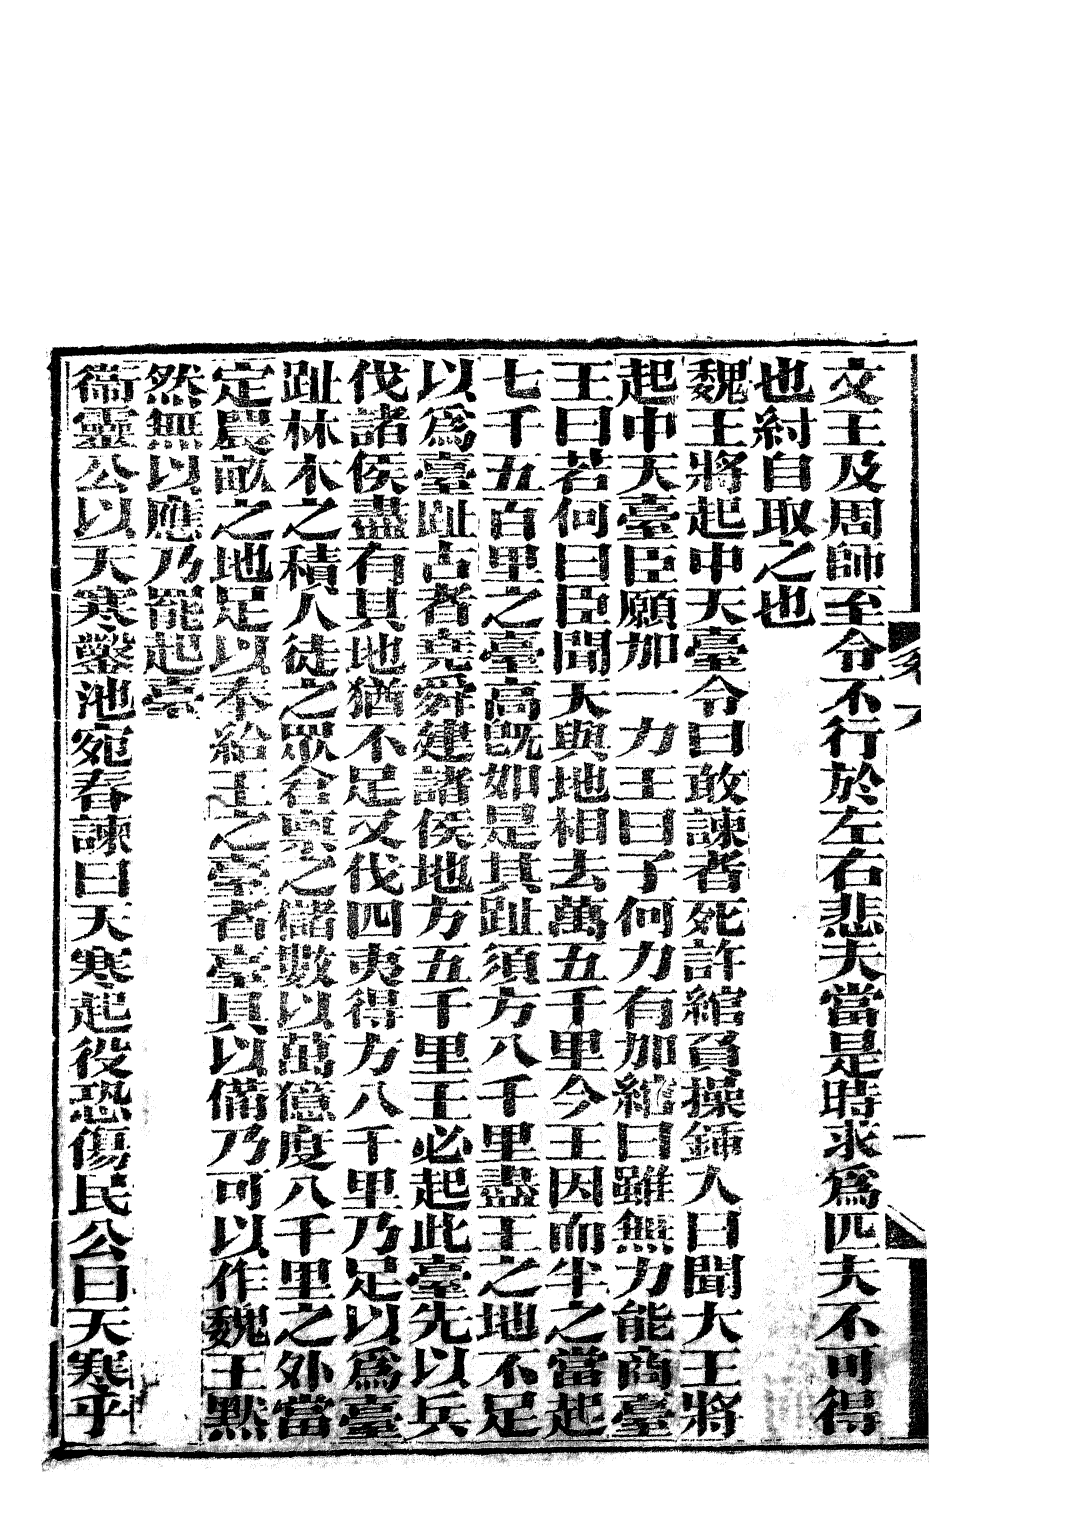 文王及周師至令不行於左右悲夫當是時求爲匹夫不可得
也紂自取之也
魏王將起中天臺令曰敢諫者死許綰負操鍤入曰聞大王將
起中天臺臣願加一力王曰子何力有加綰曰雖無力能商臺
王曰若何曰臣聞天與地相去萬五千里今王因而半之當起
七千五百里之臺高旣如是其趾須方八千里盡王之地不足
以爲臺趾古者堯舜建諸侯地方五千里王必起此臺先以兵
伐諸侯盡有其地猶不足又伐四夷得方八千里乃足以爲臺
趾林木之積人徒之眾倉廩之儲數以萬億度八千里之外當
定農畝之地足以奉給王之臺者臺具以備乃可以作魏王默
然無以應乃罷起臺
衞靈公以天寒鑿池宛春諫曰天寒起役恐傷民公曰天寒乎